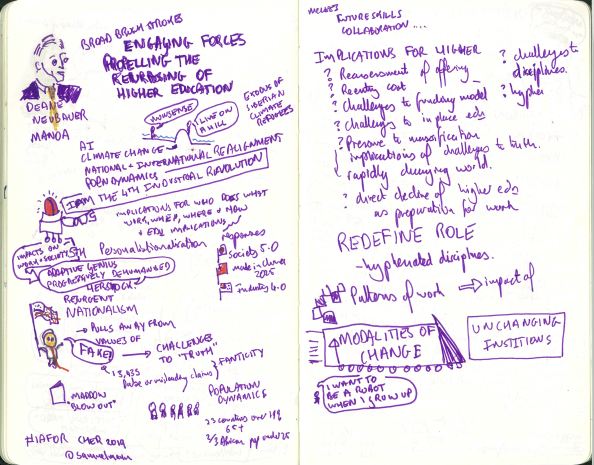 BROAD BRUSH STROKES
ENGAGING FORCES
PROPELLING THE
REPURPOSING OF
HIGHER EDUCATION
DEANE
NEUBAUER
MANOA
NONSENSE
I LIVE ON
A HILL
EXODUS OF
SIBERIAN
CLIMATE
REFUGEES
AI
CLIMATE CHANGE
NATIONAL + INTERNATIONAL REALIGNMENT
POP'N DYNAMICS
I AM THE 4TH INDUSTRIAL REVOLUTION
IMPLICATIONS FOR WHO DOES WHAT
WORK, WHEN, WHERE + HOW
+ EDU IMPLICATIONS
IMPACTS ON
WORK + SOCIETY
5TH Personalisation
ADAPTIVE GENIUS
PROGRESSIVELY DEHUMANISED
responses
Society 5.0
made in china
2025
Industry 4.0
RESURGENT
NATIONALISM
→ PULLS AWAY FROM
VALUES OF
FAKE!
→ CHALLENGE
TO "TRUTH"
13,435
false or misleading claims
"MADDOW
"BLOW OUT"
POPULATION
DYNAMICS
65+
2/3 African pop under 25
#IAFOR CHER 2019
FUTURE SKILLS
COLLABORATION ....
IMPLICATIONS FOR HIGHER
? Reassessment of offering
?
? challenges to funding model
? challenges to in place eds
? Pressure to massification
implications of challenges to truth.
rapidly changing world.
? direct decline of higher eds
as preparation for work
? challenges to
disciplines.
?
REDEFINE ROLE
- hyphenated disciplines.
Patterns of work ⇒ impact of
MODALITIES OF
CHANGE
UNCHANGING
INSTITIONS
I WANT TO
BE A ROBOT
WHEN I GROW UP